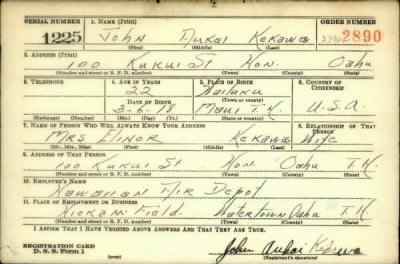 SERIAL NUMBER 1. NAME (Print) ORDER NUMBER
1225 John Aukai Kekawa 2890
(First) (Middle) (Last)
2. ADDRESS (Print)
100 Kukui St Hon. Oahu
(Number and street or R. F. D. number) (Town) (County) (State)
3. TELEPHONE 4. AGE IN YEARS 5. PLACE OF BIRTH 6. COUNTRY OF CITIZENSHIP
22 Wailuku
DATE OF BIRTH (Town or county)
3-6-18 Maui T.H. U.S.A.
(Exchange) (Number) (Mo.) (Day) (Yr.) (State or country)
7. NAME OF PERSON WHO WILL ALWAYS KNOW YOUR ADDRESS 8. RELATIONSHIP OF THAT PERSON
Mrs Elinor Kekawa Wife
(Mr., Mrs., Miss) (First) (Middle) (Last)
9. ADDRESS OF THAT PERSON
100 Kukui St Hon. Oahu T.H.
(Number and street or R. F. D. number) (Town) (County) (State)
10. EMPLOYER'S NAME
Hawaiian Air Depot
11. PLACE OF EMPLOYMENT OR BUSINESS
Hickam Field Watertown Oahu T.H.
(Number and street or R. F. D. number) (Town) (County) (State)
I AFFIRM THAT I HAVE VERIFIED ABOVE ANSWERS AND THAT THEY ARE TRUE.
REGISTRATION CARD
D. S. S. Form 1
John Aukai Kekawa
(Registrant's signature)